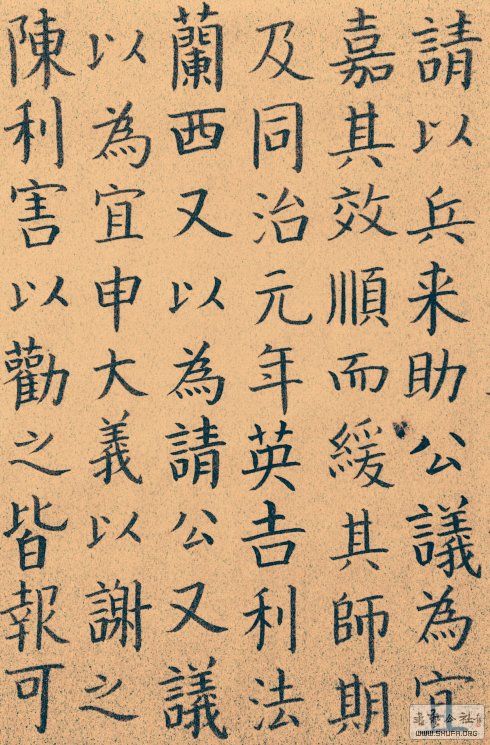 請以兵来助公議為宜
嘉其效順而緩其師期
及同治元年英吉利法
蘭西又以為請公又議
以為宜申大義以謝之
陳利害以勸之皆報可
WWW.SHUFA.ORG